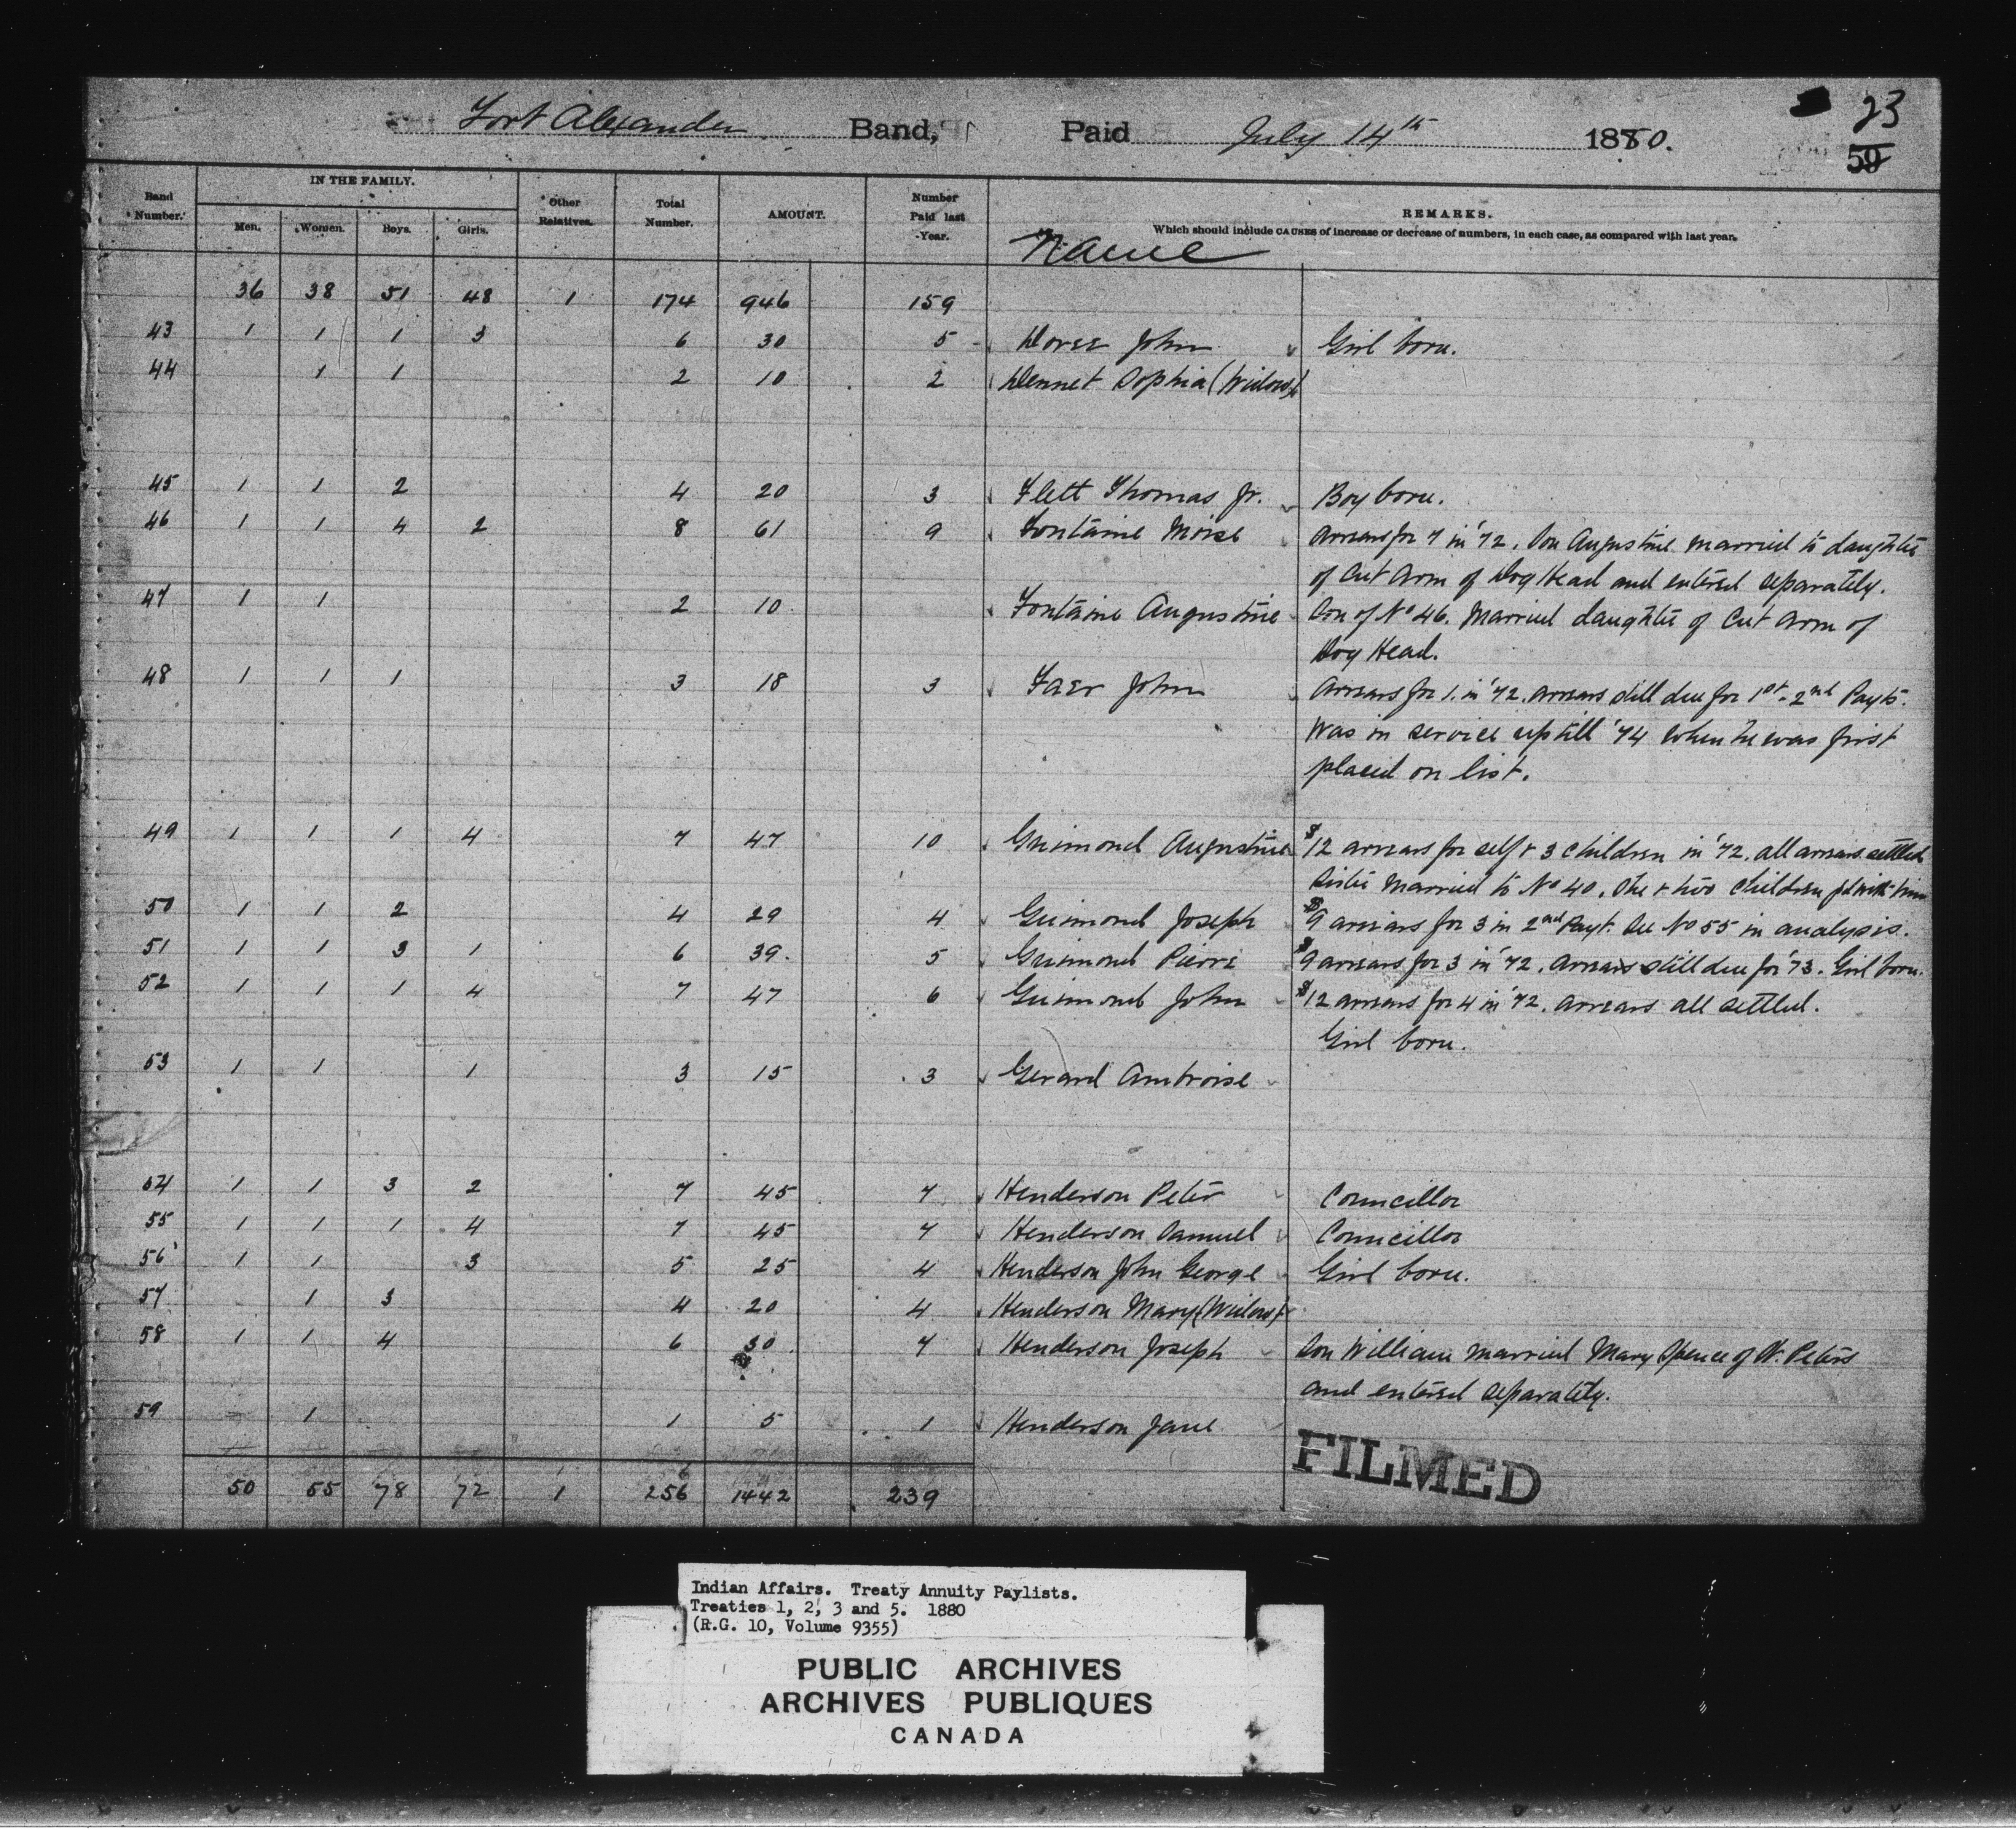 23
Fort Alexander Band, Paid July 14th 1880.
59
Band Number. IN THE FAMILY. Men. Women. Boys. Girls. Other Relatives. Total Number. AMOUNT. Number Paid last Year. REMARKS.
Which should include CAUSES of increase or decrease of numbers, in each case, as compared with last year.
Name
36 38 51 48 1 174 946 159
43 1 1 1 3 6 30 5 John Girl born.
44 1 1 2 10 2 Dennet Sophia (Widow)
45 1 1 2 4 20 3 Flett Thomas Jr. Boy born.
46 1 1 4 2 8 61 9 Fontaine Moise Arrears for 7 in '72. Son Augustine married to daughter
of Cut Arm of Dog Head and entered separately.
47 1 1 2 10 Fontaine Augustine Son of No 46. Married daughter of Cut Arm of
Dog Head.
48 1 1 1 3 18 3 John Arrears for 1. in '72. arrears still due for 1st & 2nd Payts.
Was in service up till '74 when he was first
placed on list.
49 1 1 1 4 7 47 10 Guimond Augustine $12 arrears for self & 3 children in '72. all arrears settled
Sister married to No 40. She & two children pd with him
50 1 1 2 4 29 4 Guimond Joseph $9 arrears for 3 in 2nd Payt. See No 55 in analysis.
51 1 1 3 1 6 39. 5 Guimond Pierre $9 arrears for 3 in '72. Arrears still due for '73. Girl born.
52 1 1 1 4 7 47 6 Guimond John $12 arrears for 4 in '72. arrears all settled.
Girl born.
53 1 1 1 3 15 3 Gerard Ambroise
54 1 1 3 2 7 45 7 Henderson Peter Councillor
55 1 1 1 4 7 45 7 Henderson Samuel Councillor
56 1 1 3 5 25 4 Henderson John George Girl born.
57 1 3 4 20 4 Henderson Mary (Widow)
58 1 1 4 6 30 7 Henderson Joseph Son William married Mary Spence of St. Peters
and entered separately.
59 1 1 5 1 Henderson Jane
FILMED
6
50 55 78 72 1 256 1442 239
Indian Affairs. Treaty Annuity Paylists.
Treaties 1, 2, 3 and 5. 1880
(R.G. 10, Volume 9355)
PUBLIC ARCHIVES
ARCHIVES PUBLIQUES
CANADA